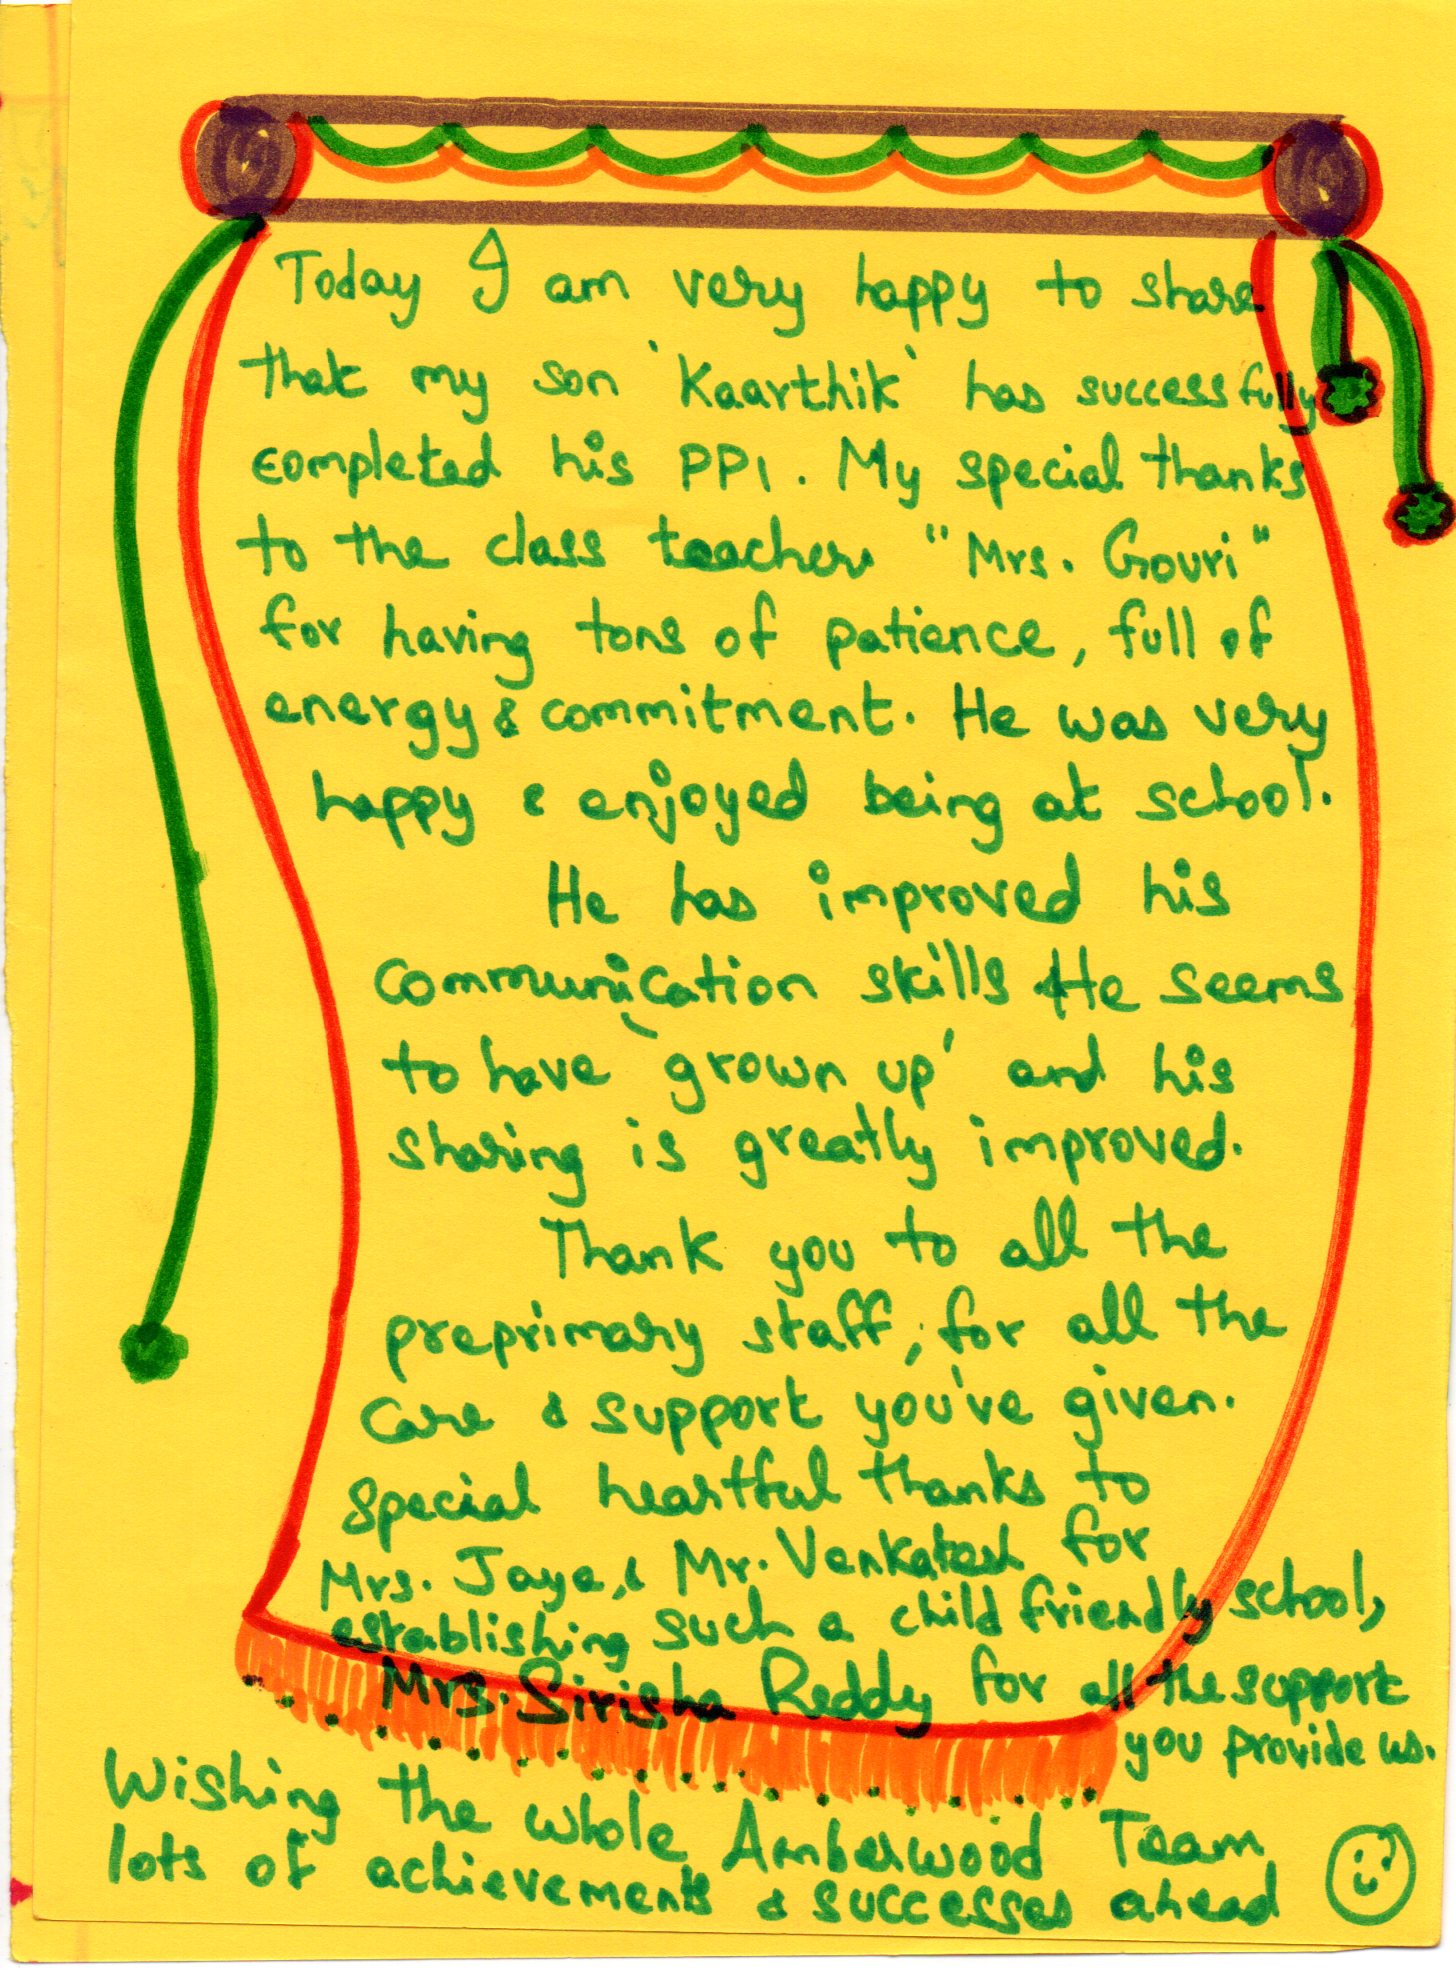 Today I am very happy to share
that my son 'Kaarthik' has successfully
completed his PP1. My special thanks
to the class teacher "Mrs. Gouri"
for having tons of patience, full of
energy & commitment. He was very
happy & enjoyed being at school.
He has improved his
communication skills He seems
to have 'grown up' and his
sharing is greatly improved.
Thank you to all the
preprimary staff, for all the
care & support you've given.
Special heartful thanks to
Mrs. Jaya, & Mr. Venkatesh for
establishing such a child friendly school,
Mrs. Sirisha Reddy for all the support
you provide us.
Wishing the whole Amberwood Team
lots of achievements & successes ahead